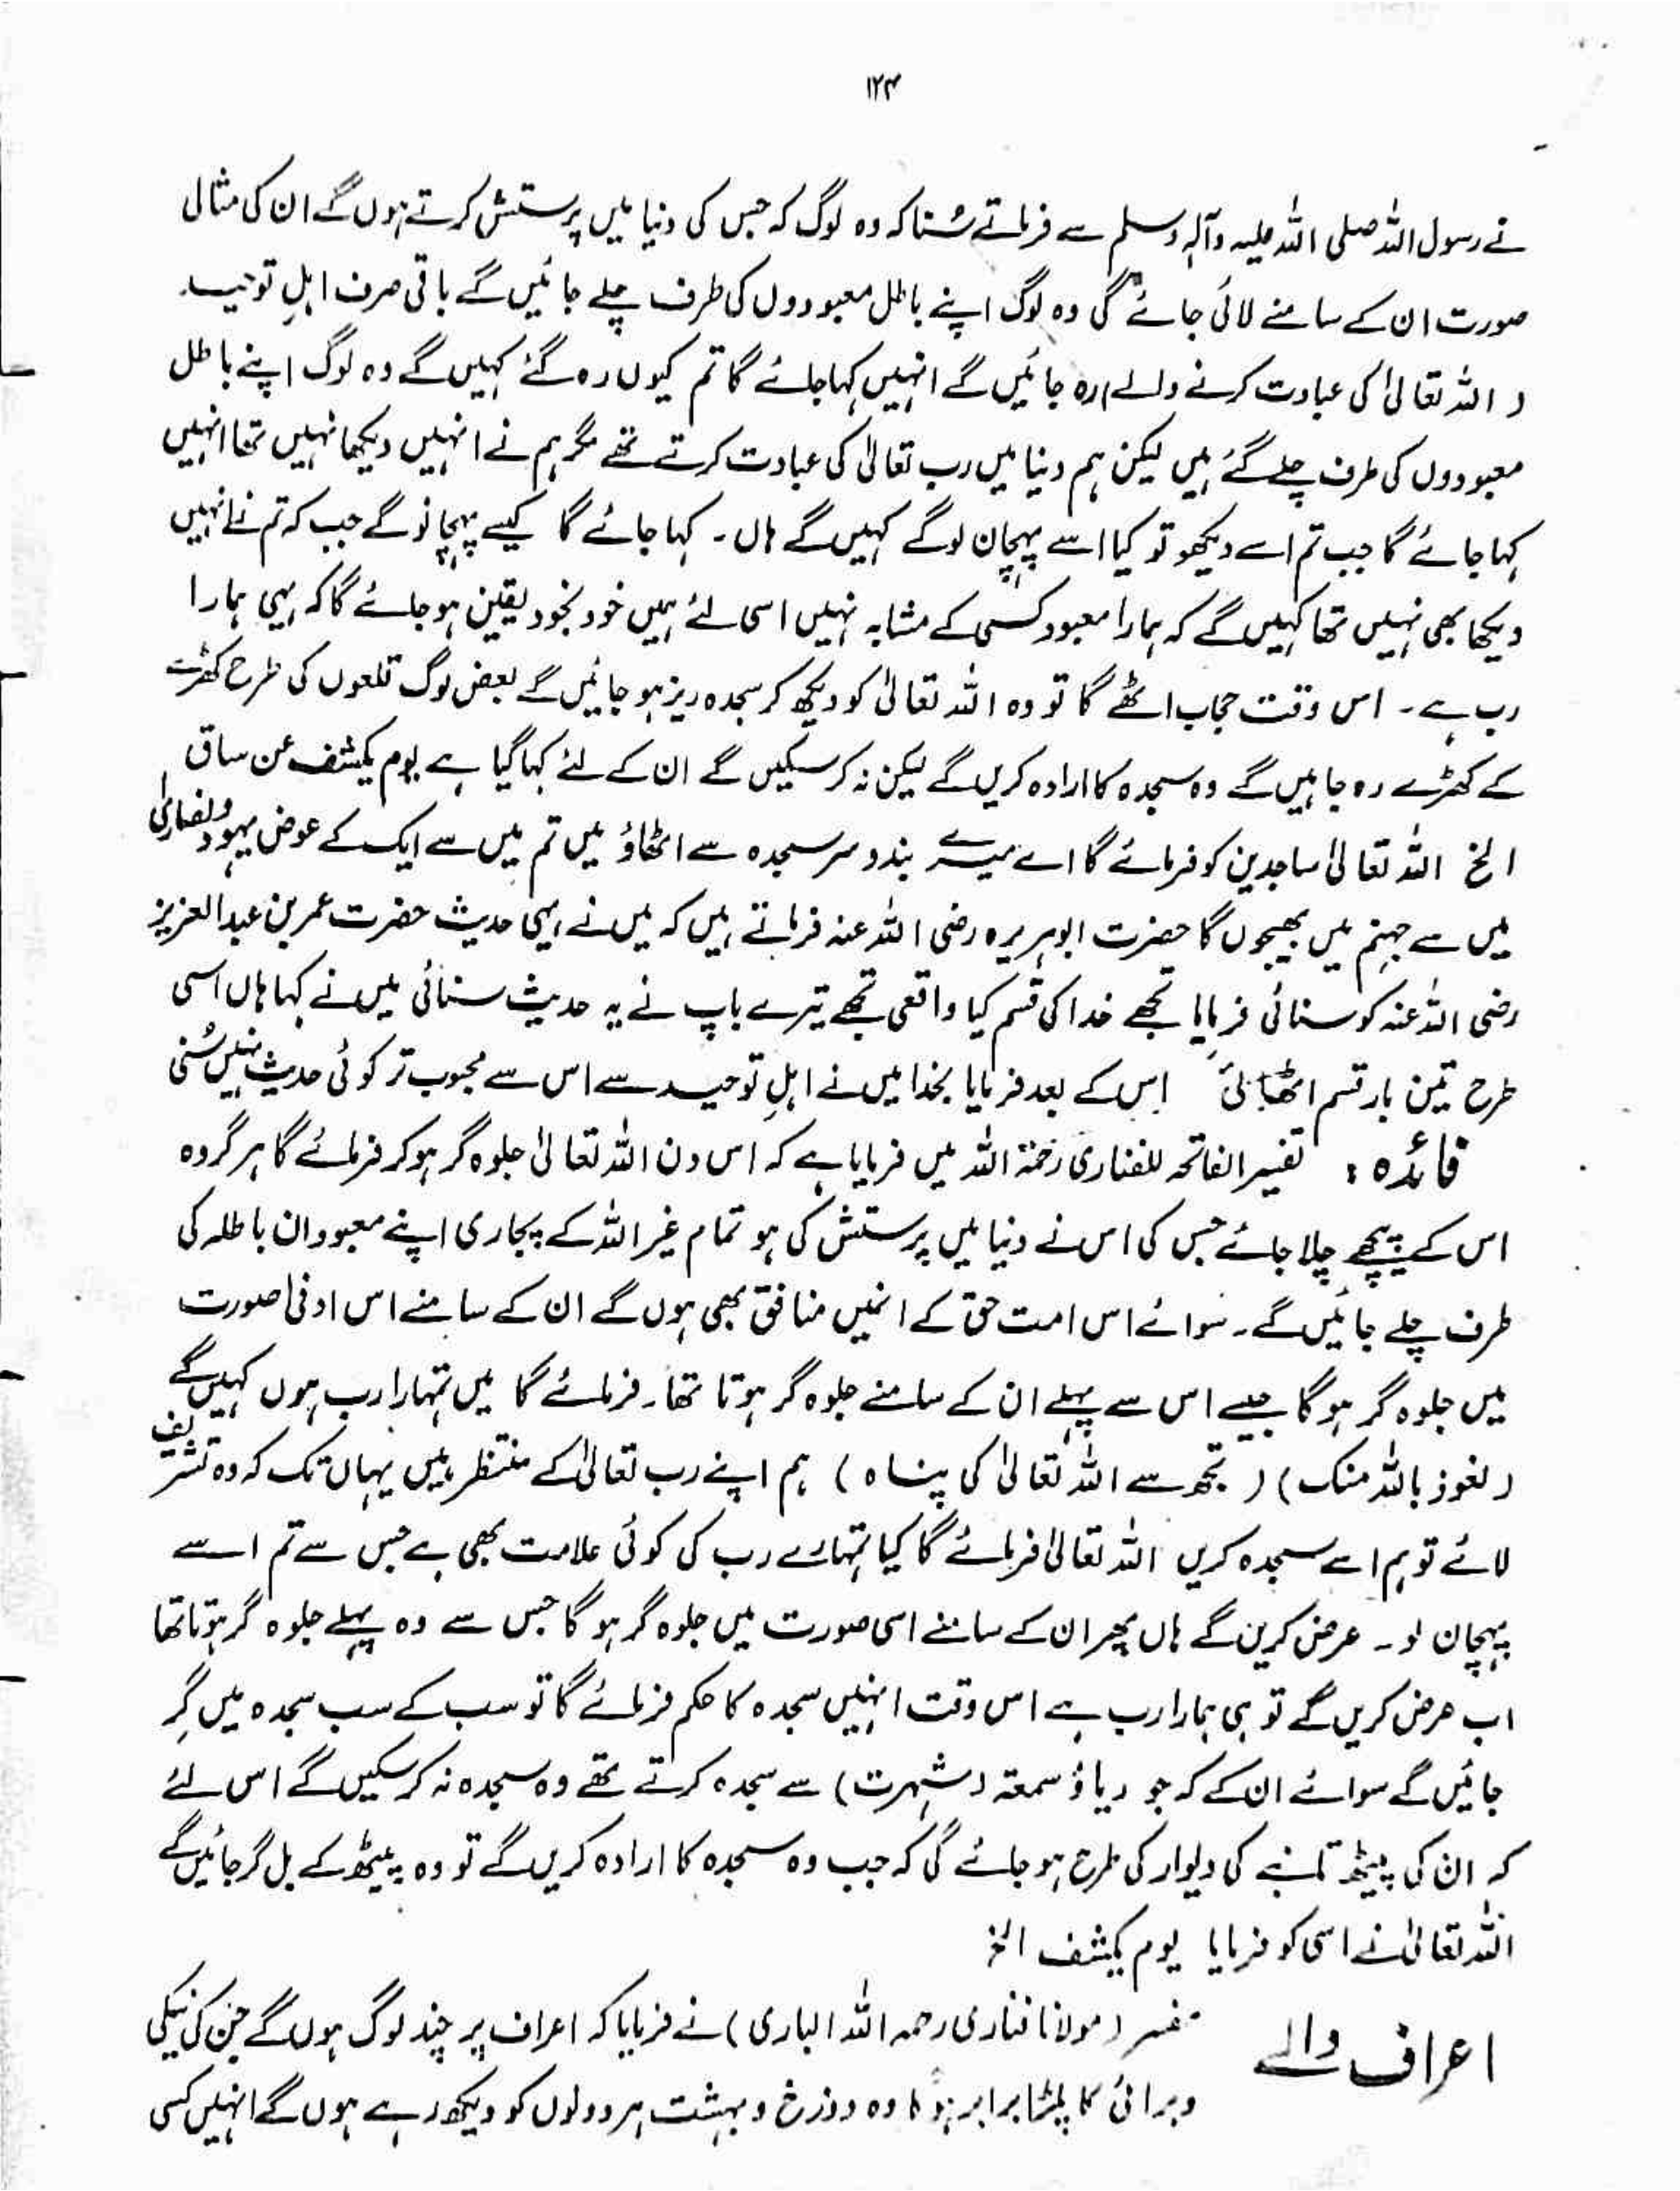 ۱۲۴
نے رسول اللہ صلی اللہ علیہ وآلہ وسلم سے فرماتے سُنا کہ وہ لوگ کہ جس کی دنیا میں پرستش کرتے ہوں گے ان کی مثالی
صورت ان کے سامنے لائی جائے گی وہ لوگ اپنے باطل معبودوں کی طرف چلے جائیں گے باقی صرف اہلِ توحید
( اللہ تعالیٰ کی عبادت کرنے والے) رہ جائیں گے انہیں کہا جائے گا تم کیوں رہ گئے کہیں گے وہ لوگ اپنے باطل
معبودوں کی طرف چلے گئے ہیں لیکن ہم دنیا میں رب تعالیٰ کی عبادت کرتے تھے مگر ہم نے انہیں دیکھا نہیں تھا انہیں
کہا جائے گا جب تم اسے دیکھو تو کیا اسے پہچان لوگے کہیں گے ہاں ۔ کہا جائے گا کیسے پہچانو گے جب کہ تم نے انہیں
دیکھا بھی نہیں تھا کہیں گے کہ ہمارا معبود کسی کے مشابہ نہیں اسی لئے ہمیں خود بخود یقین ہو جائے گا کہ یہی ہمارا
رب ہے ۔ اس وقت حجاب اٹھے گا تو وہ اللہ تعالیٰ کو دیکھ کر سجدہ ریز ہو جائیں گے بعض لوگ قلعوں کی طرح کھڑے
کے کھڑے رہ جاہیں گے وہ سجدہ کا ارادہ کریں گے لیکن نہ کر سکیں گے ان کے لئے کہا گیا ہے یوم یکشف عن ساق
الخ اللہ تعالیٰ ساجدین کو فرمائے گا اے میرے بندو سر سجدہ سے اٹھاؤ میں تم میں سے ایک کے عوض یہود ونصاریٰ
میں سے جہنم میں بھیجوں گا حضرت ابوہریرہ رضی اللہ عنہ فرماتے ہیں کہ میں نے یہی حدیث حضرت عمر بن عبد العزیز
رضی اللہ عنہ کو سنائی فرمایا تجھے خدا کی قسم کیا واقعی تجھے تیرے باپ نے یہ حدیث سنائی میں نے کہا ہاں اسی
طرح تین بار قسم اٹھائی اس کے بعد فرمایا بخدا میں نے اہلِ توحید سے اس سے محبوب تر کوئی حدیث نہیں سُنی
فائدہ : تفسیر الفاتحہ للفناری رحمۃ اللہ میں فرمایا ہے کہ اس دن اللہ تعالیٰ جلوہ گر ہو کر فرمائے گا ہر گروہ
اس کے پیچھے چلا جائے جس کی اس نے دنیا میں پرستش کی ہو تمام غیر اللہ کے پجاری اپنے معبودان باطلہ کی
طرف چلے جائیں گے ۔ سوائے اس امت حق کے انمیں منافق بھی ہوں گے ان کے سامنے اس ادنیٰ صورت
میں جلوہ گر ہو گا جیسے اس سے پہلے ان کے سامنے جلوہ گر ہوتا تھا ۔ فرمائے گا میں تمہارا رب ہوں کہیں گے
( نعوذ باللہ منک ) ( تجھ سے اللہ تعالیٰ کی پناہ ) ہم اپنے رب تعالیٰ کے منتظر ہیں یہاں تک کہ وہ تشریف
لائے تو ہم اسے سجدہ کریں اللہ تعالیٰ فرمائے گا کیا تمہارے رب کی کوئی علامت بھی ہے جس سے تم اسے
پہچان لو ۔ عرض کریں گے ہاں پھر ان کے سامنے اسی صورت میں جلوہ گر ہو گا جس سے وہ پہلے جلوہ گر ہوتا تھا
اب عرض کریں گے تو ہی ہمارا رب ہے اس وقت انہیں سجدہ کا حکم فرمائے گا تو سب کے سب سجدہ میں گِر
جائیں گے سوائے ان کے کہ جو ریاؤ سمعتہ ( شہرت ) سے سجدہ کرتے تھے وہ سجدہ نہ کر سکیں گے اس لئے
کہ ان کی پیٹھ تانبے کی دیوار کی طرح ہو جائے گی کہ جب وہ سجدہ کا ارادہ کریں گے تو وہ پیٹھ کے بل گر جائیں گے
اللہ تعالیٰ نے اسی کو فرمایا یوم یکشف الخ
اعراف والے مفسر ( مولانا فناری رحمہ اللہ الباری ) نے فرمایا کہ اعراف پر چند لوگ ہوں گے جن کی نیکی
و برائی کا پلڑا برابر ہو گا وہ دوزخ و بہشت ہر دونوں کو دیکھ رہے ہوں گے انہیں کسی